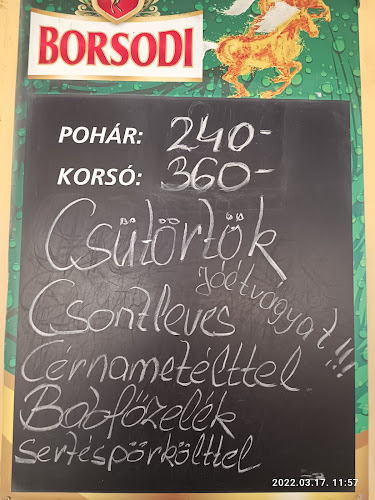 BORSODI
POHÁR: 240-
KORSÓ: 360-
Csütörtök
Jóétvágyat!!!
Csontleves
Cérnametélttel
Babfőzelék
sertéspörkölttel
2022.03.17. 11:57